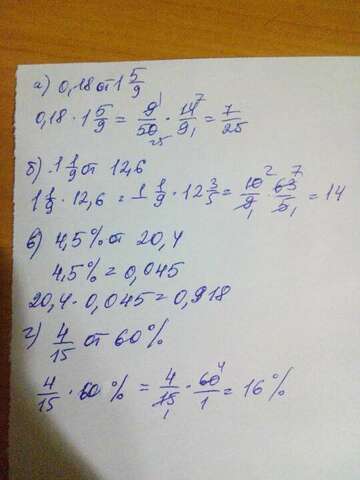 а) 0,18 от 1 5/9
0,18 · 1 5/9 = 9/50 · 14/9 = 7/25
б) 1 1/9 от 12,6
1 1/9 · 12,6 = 1 1/9 · 12 3/5 = 10/9 · 63/5 = 14
в) 4,5% от 20,4
4,5% = 0,045
20,4 · 0,045 = 0,918
г) 4/15 от 60%
4/15 · 60 % = 4/15 · 60/1 = 16%